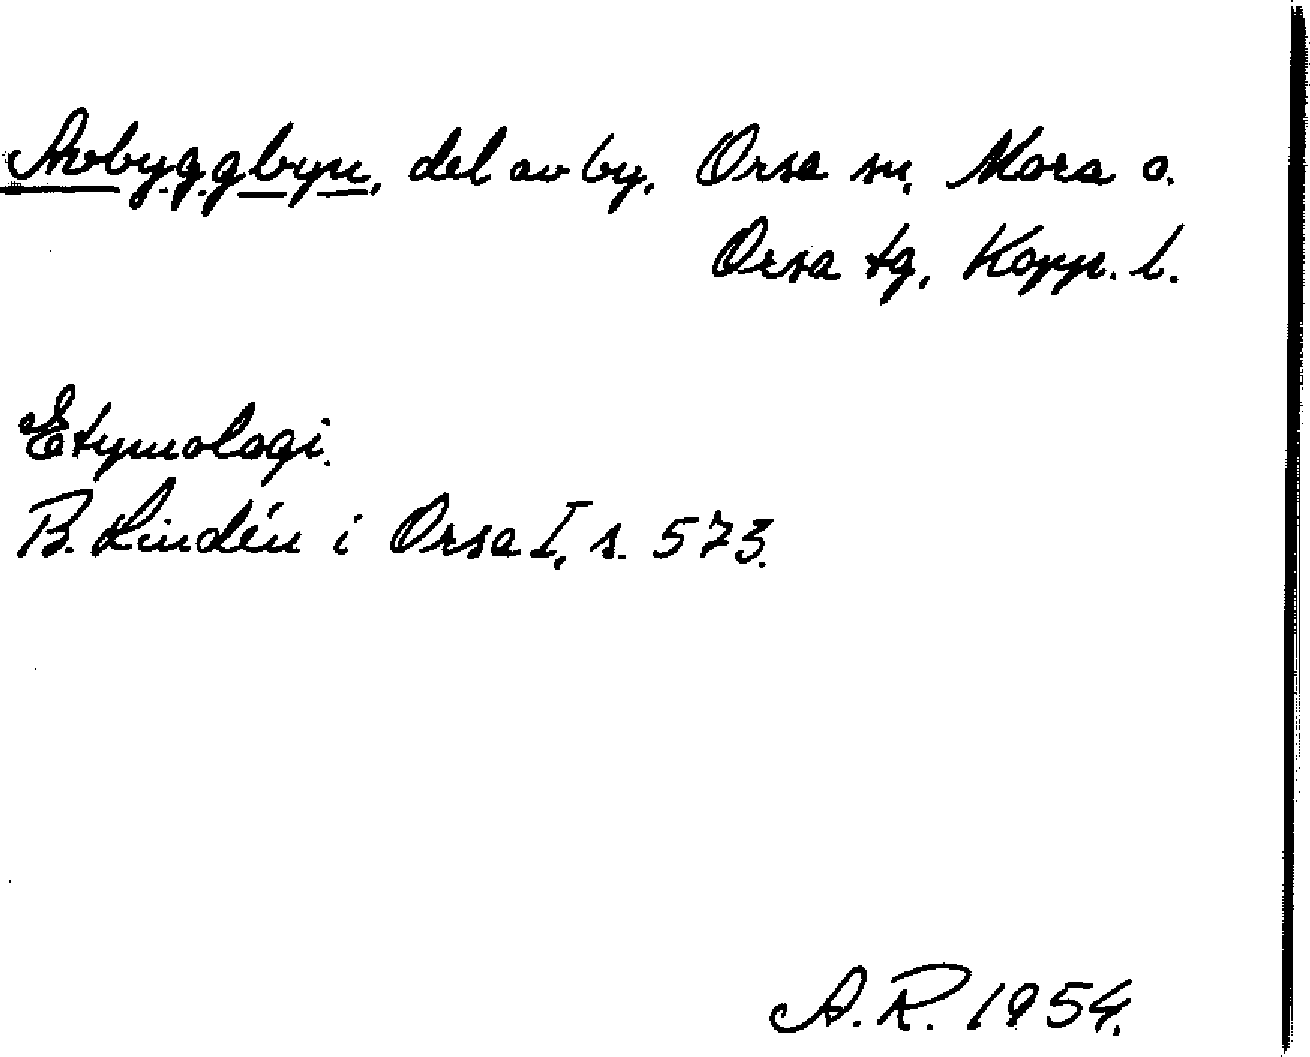 del av by, Orsa sn, Mora o.
Orsa tg, Kopp. l.
Etymologi.
B. Lindén i Orsa I, s. 573.
A.R. 1954.